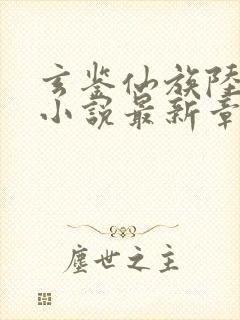 玄鉴仙族陸
小說最新章
塵世之主